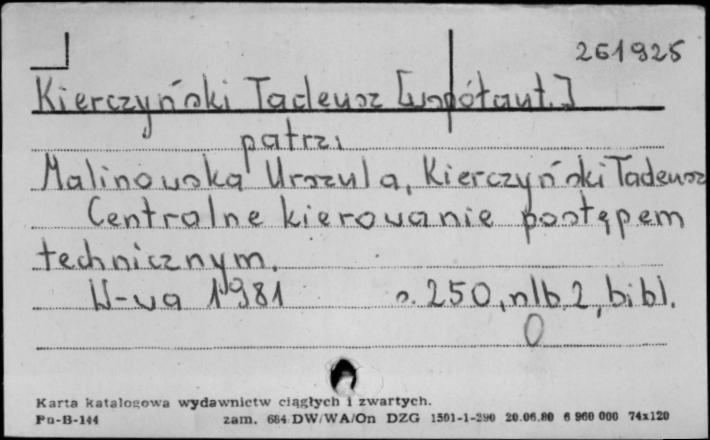 261925
Kierczyński Tadeusz [współaut.]
patrz:
Malinowska Urszula, Kierczyński Tadeusz
Centralne kierowanie postępem
technicznym.
W-wa 1981 s. 250, nlb 2, bibl.
0
Karta katalogowa wydawnictw ciągłych i zwartych.
Pu-B-144 zam. 684/DW/WA/On DZG 1501-1-290 20.06.80 6 960 000 74x120